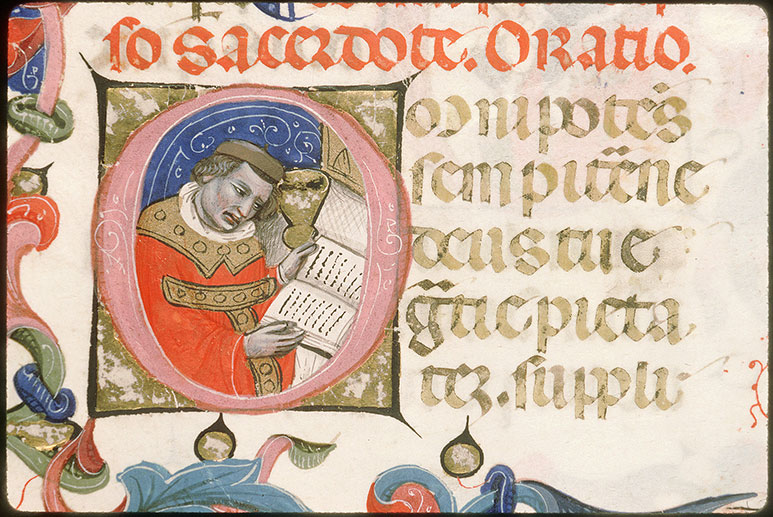 so Sacerdote. Oratio.
Omnipotēs
sempit̄ne
deus tue
gr̄tie pieta
tez. suppli